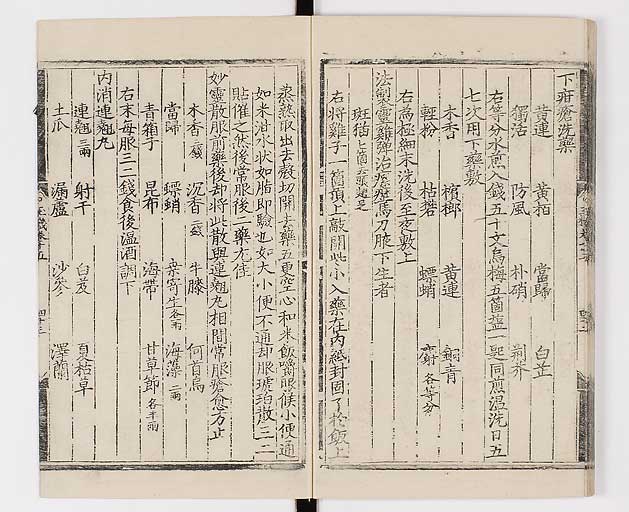 下疳瘡洗藥
黃連 黃栢 當歸 白芷
獨活 防風 朴硝 荊芥
右等分水煎入錢五十文烏梅五箇塩一匙同煎温洗日五
七次用下藥敷
木香 檳榔 黃連 銅青
輕粉 枯礬 螵蛸 各等分
右為極細末洗後至夜敷上
法製靈雞彈治疾癧馬刀腋下生者
斑猫七箇去翅足
右將雞子一箇頂上敲開些小入藥在內紙封固了於飯上
蒸熟取出去殼切開去藥五更空心和米飯嚼候小便通
如米泔水狀如脂即驗也如大小便不通却服琥珀散三二
貼催之然後常服後一藥尤佳
妙靈散服前藥後却將此散與連翹丸相間常服瘡愈方止
木香 沉香 牛膝 何首烏
當歸 螵蛸 桑寄生各一兩 海藻二兩
青箱子 昆布 海帶 甘草節各半兩
右末每服三二錢食後温酒調下
內消連翹丸
連翹二兩 射干 白芨 夏枯草
土瓜 漏蘆 沙參 澤蘭